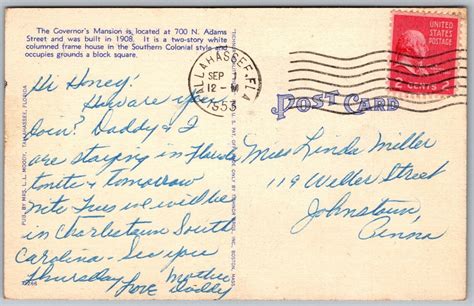 The Governor's Mansion is located at 700 N. Adams
Street and was built in 1908. It is a two-story white
columned frame house in the Southern Colonial style and
occupies grounds a block square.
TALLAHASSEE, FLA
SEP 1
12-M
1953
UNITED STATES
POSTAGE
2 CENTS 2
POST CARD
PUB. BY MRS. L. L. MOODY, TALLAHASSEE, FLORIDA
Hi Honey!
How are you
doin? Daddy & I
are staying in Florida
tonite & tomorrow
nite Tues we will be
in Charlestown South
Carolina - See you
Thursday
Love Mother
Daddy
Miss Linda Miller
119 Weller Street
Johnstown,
Penna